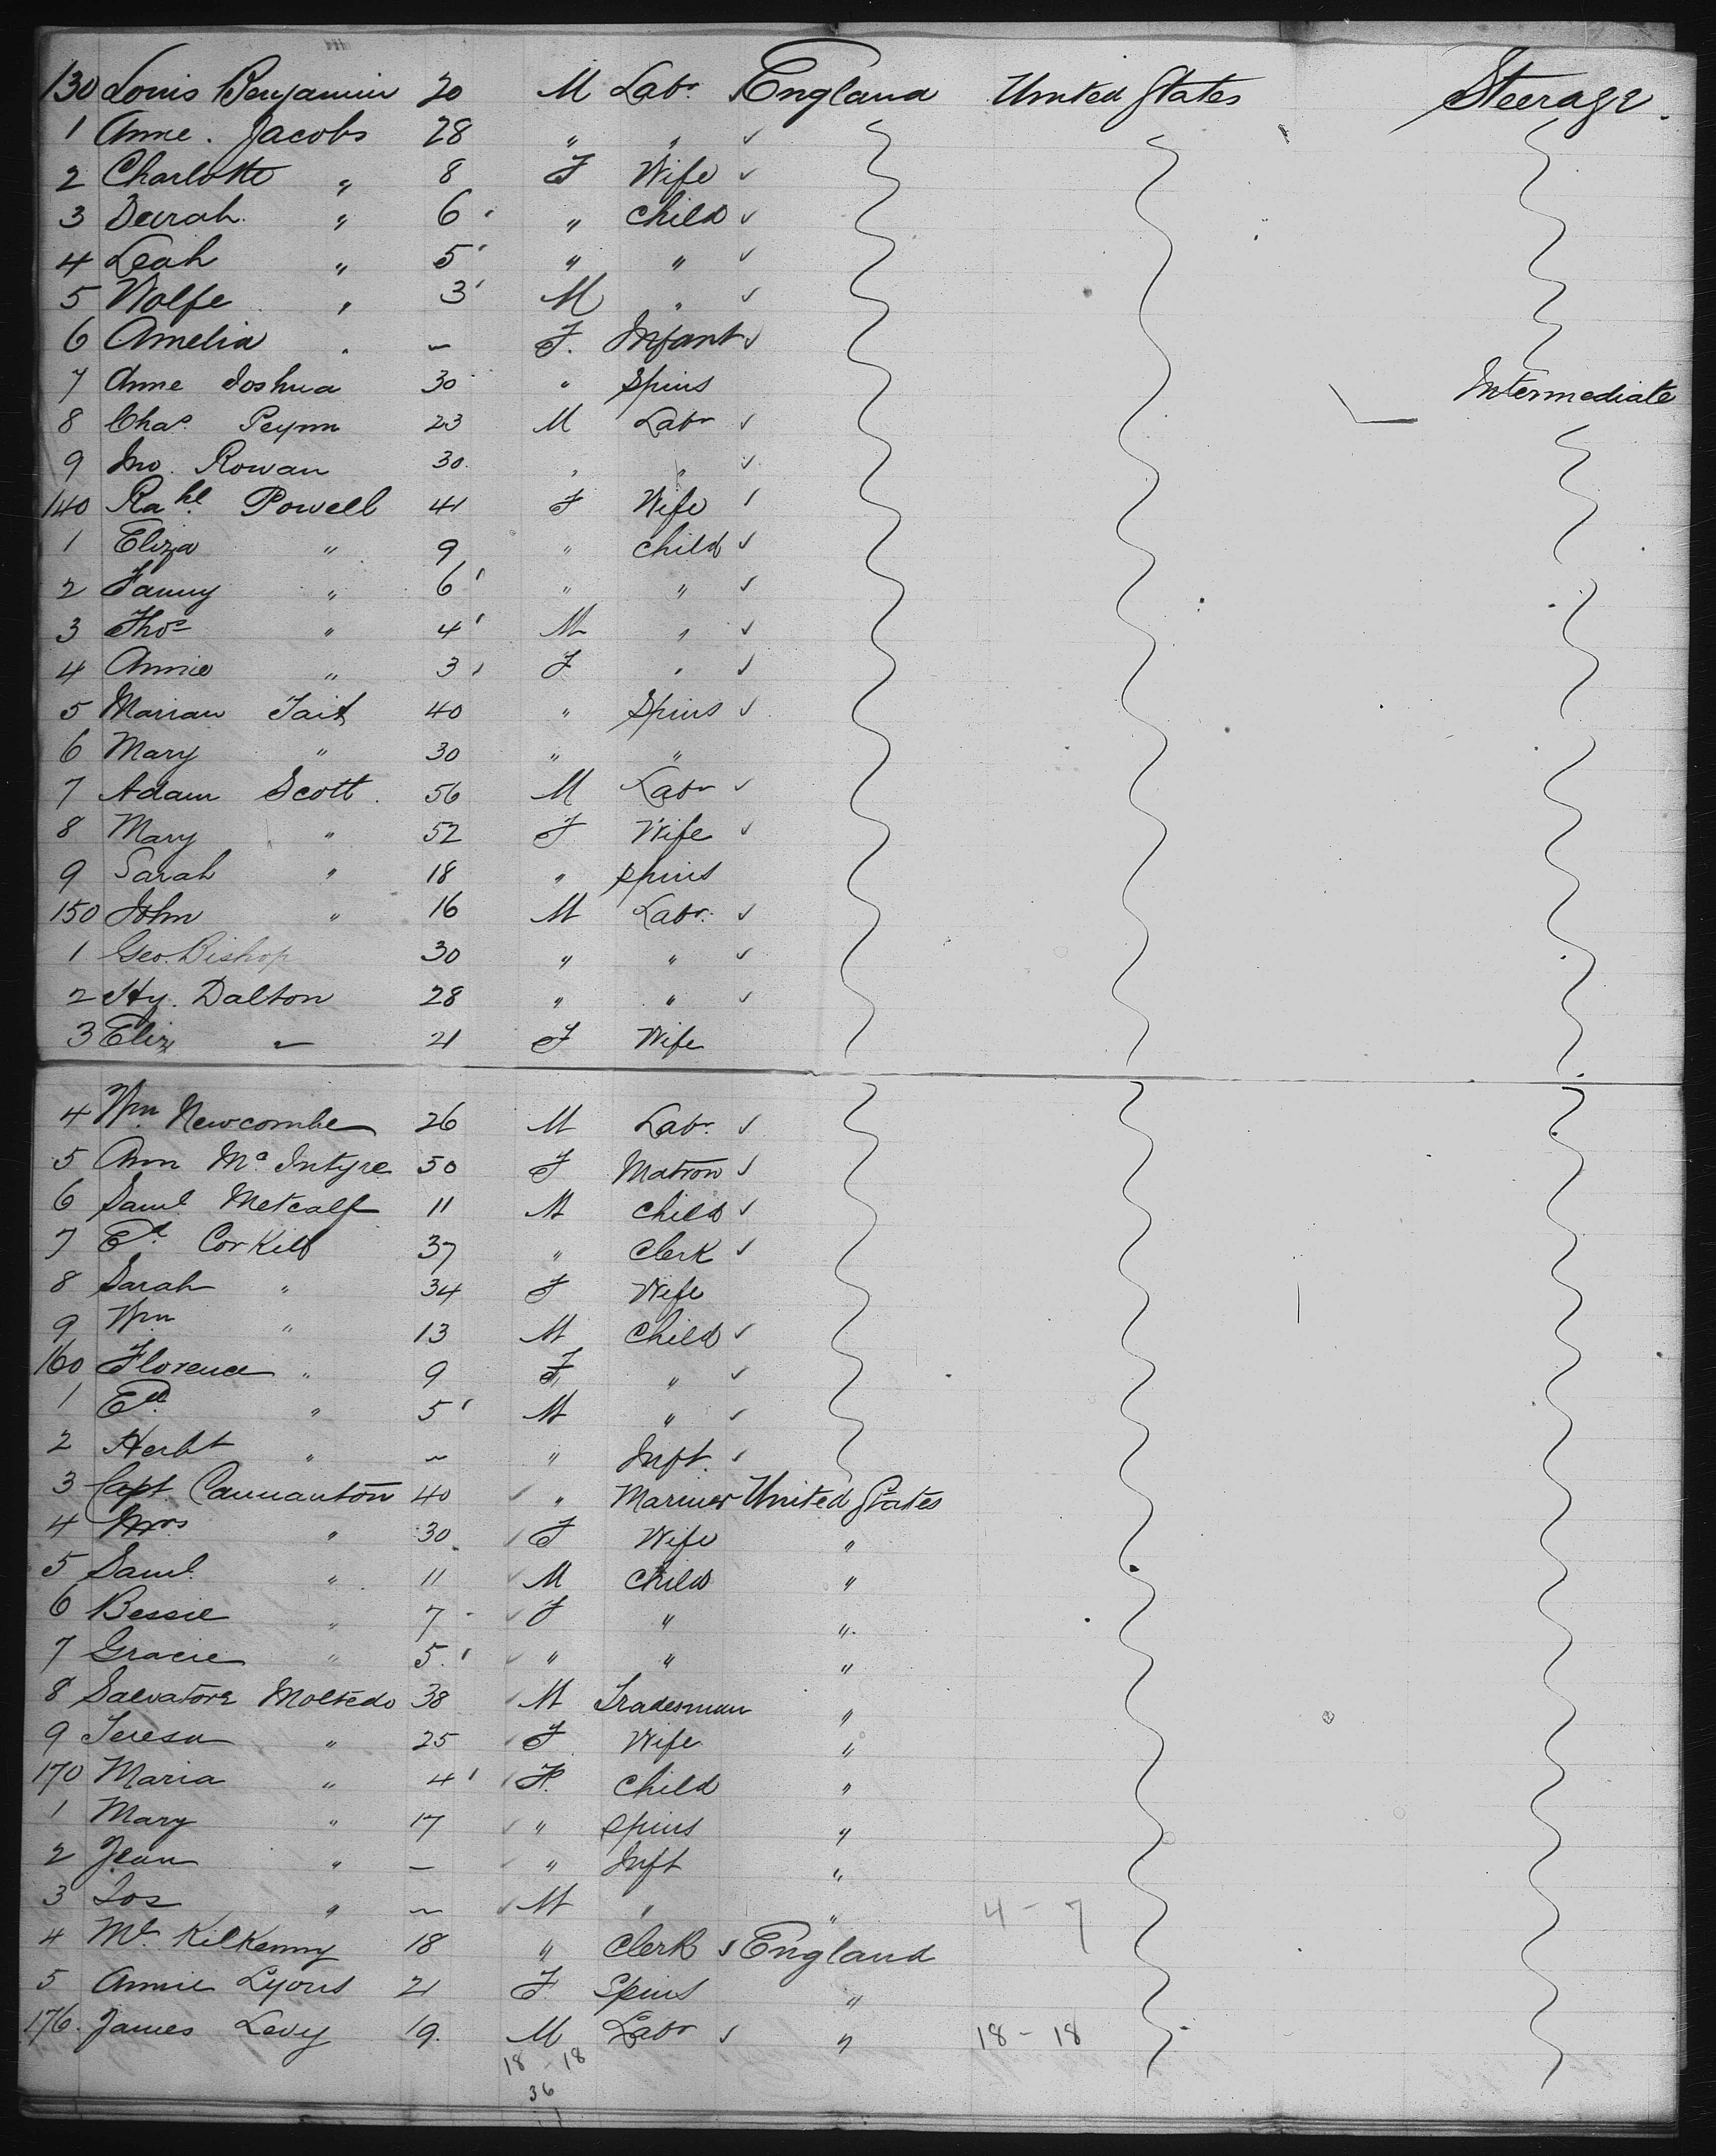 130 Louis Benjamin 20 M Labr. England United States Steerage.
1 Anne. Jacobs 28 " " ✓
2 Charlotte " 8 F Wife ✓
3 " 6 " Child ✓
4 Leah " 5 " " ✓
5 Wolfe " 3 M " ✓
6 Amelia " – F. Infant ✓
7 Anne Joshua 30 " Spins Intermediate
8 Chas. 23 M Labr ✓
9 Jno. Rowan 30. " " ✓
140 Rahl. Powell 41 F Wife
1 Eliza " 9 " Child ✓
2 Fanny " 6 " " ✓
3 Thos " 4 M " ✓
4 Annie " 3 F " ✓
5 Marian Tait 40 " Spins ✓
6 Mary " 30 " "
7 Adam Scott. 56 M Labr ✓
8 Mary " 52 F Wife ✓
9 Sarah " 18 " Spins
150 John " 16 M Labr. ✓
1 Geo. Bishop 30 " " ✓
2 Hy. Dalton 28 " " ✓
3 Eliz " 21 F Wife
4 Wm. Newcombe 26 M Labr. ✓
5 Ann Mc Intyre 50 F Matron ✓
6 Saml. Metcalf 11 M Child ✓
7 Ed. Corkill 37 " Clerk ✓
8 Sarah " 34 F Wife
9 Wm " 13 M Child ✓
160 Florence " 9 F " ✓
1 Ed. " 5 M " ✓
2 Herbt " – " Inft. ✓
3 Capt. 40 ✓ " Mariner United States
4 Mrs " 30. F Wife "
5 Saml. " 11 M Child "
6 Bessie " 7 ✓ F " "
7 Gracie " 5. ✓ " " "
8 Salvatore Moltedo 38 M Tradesman "
9 Teresa " 25 F Wife "
170 Maria " 4 F. Child "
1 Mary " 17 ✓ " Spins "
2 Jean " – ✓ " Inft "
3 Jos " – ✓ M " " 4 – 7
4 Ml. Kilkenny 18 " Clerk ✓ England
5 Annie Lyons 21 F Spins "
176. James Levy 19. M Labr ✓ " 18 – 18
18 – 18
36